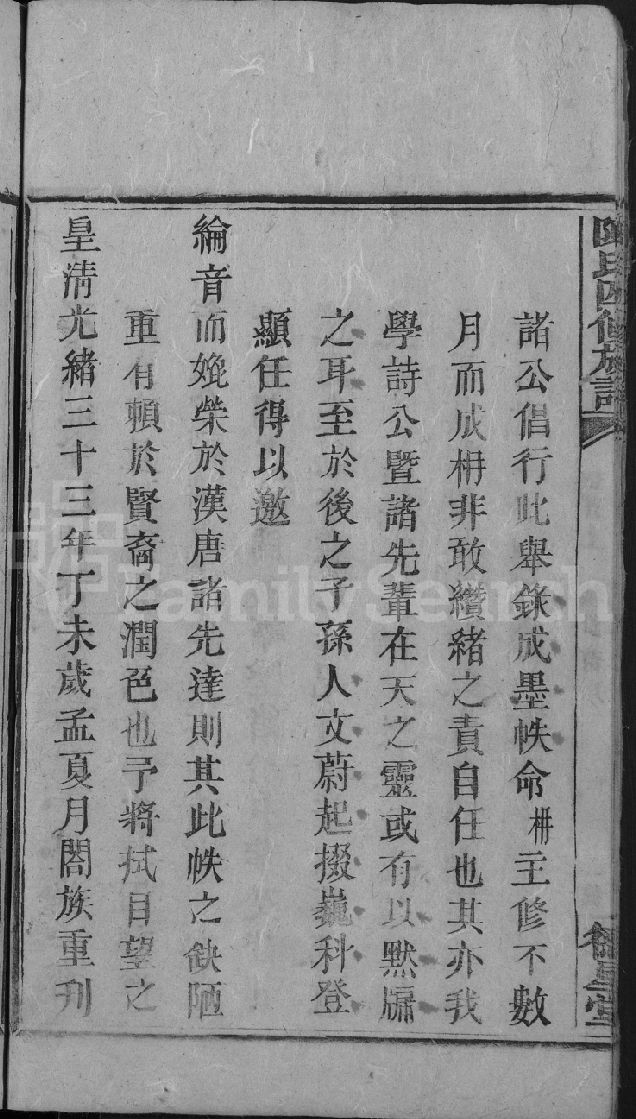 陳氏四修族譜
諸公倡行此舉錄成墨帙命柟主修不數
月而成柟非敢纘緒之責自任也其亦我
學詩公暨諸先輩在天之靈或有以默牖
之耳至於後之子孫人文蔚起掇巍科登
顯任得以邀
綸音而娩榮於漢唐諸先達則其此帙之缺陋
重有賴於賢裔之潤色也予將拭目望之
皇淸光緒三十三年丁未歲孟夏月閤族重刋
FamilySearch